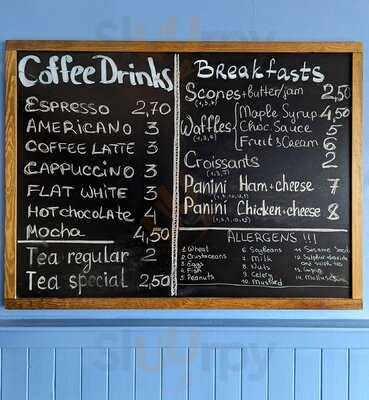 Coffee Drinks
Espresso 2,70
Americano 3
Coffee Latte 3
Cappuccino 3
Flat White 3
Hot chocolate 4
Mocha 4,50
Tea regular 2
Tea special 2,50
Breakfasts
Scones + butter/jam 2,50
Waffles
Maple Syrup 4,50
Choc. Sauce 5
Fruit & Cream 6
Croissants 2
Panini Ham + cheese 7
Panini Chicken + cheese 8
ALLERGENS !!!
1 Wheat
2 Crustaceans
3 Eggs
4 Fish
5 Peanuts
6 Soybeans
7 Milk
8 Nuts
9 Celery
10 Mustard
11 Sesame Seeds
12 Sulphur dioxide
and sulphites
13 Lupin
14 Molluscs